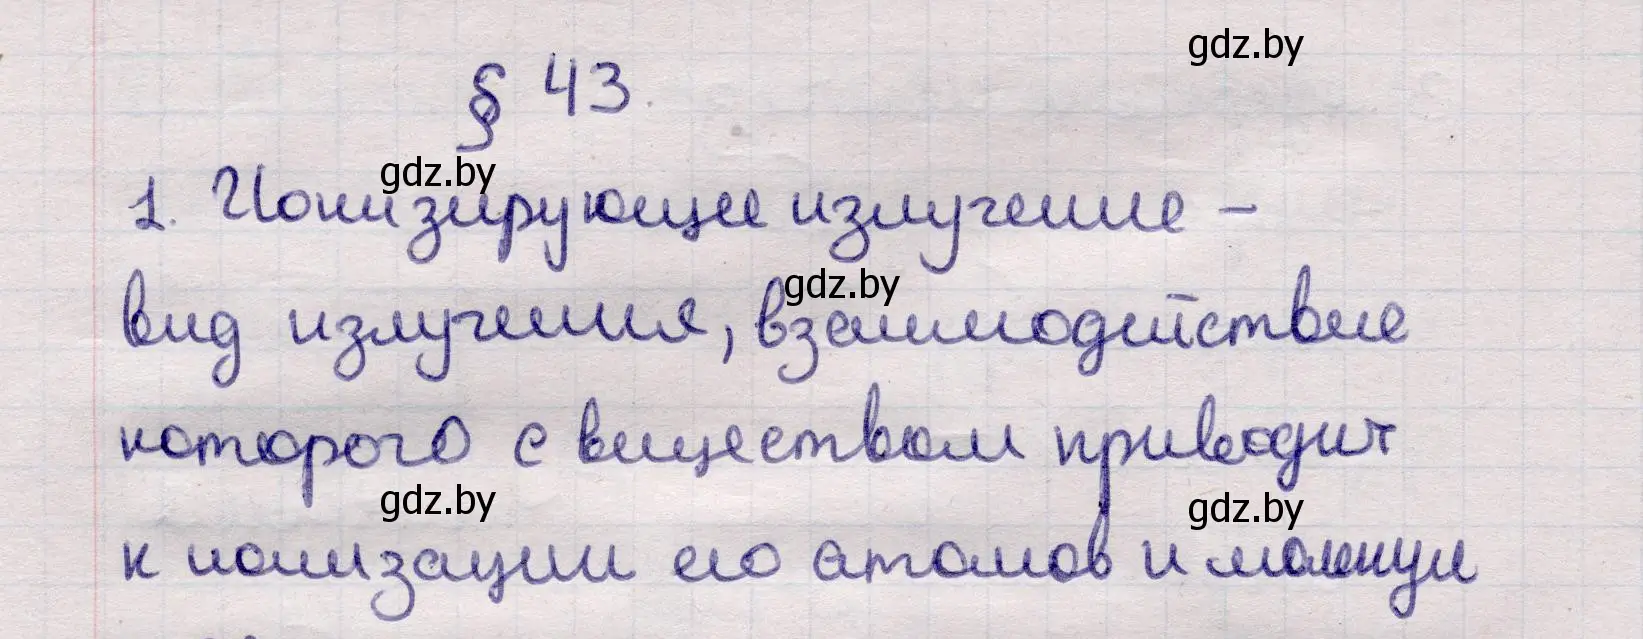 gdz.by
§ 43.
gdz.by
1. Ионизирующее излучение –
gdz.by
вид излучения, взаимодействие
которого с веществом приводит
gdz.by gdz.by
к ионизации его атомов и молекул